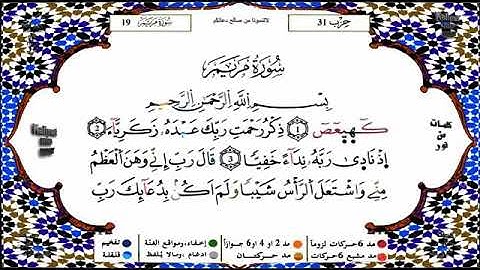 حزب 31
لاتنسونا من صالح دعائكم
سورة مريم 19
سُورَةُ مَرْيَمَ
بِسْمِ اللَّهِ الرَّحْمَٰنِ الرَّحِيمِ
كٓهيعٓصٓ ۝١ ذِكْرُ رَحْمَتِ رَبِّكَ عَبْدَهُۥ زَكَرِيَّآءَ ۝٢
إِذْ نَادَىٰ رَبَّهُۥ نِدَآءً خَفِيًّا ۝٣ قَالَ رَبِّ إِنِّى وَهَنَ ٱلْعَظْمُ
مِنِّى وَٱشْتَعَلَ ٱلرَّأْسُ شَيْبًا وَلَمْ أَكُنۢ بِدُعَآئِكَ رَبِّ
كلمات
من
نور
مد 6 حركات لزوماً
مد 2 او 4 او 6 جوازاً
إخفاء، ومواقع الغنة
تفخيم
مد مشبع 6 حركات
مد حركتان
ادغام، ومالا يلفظ
قلقلة